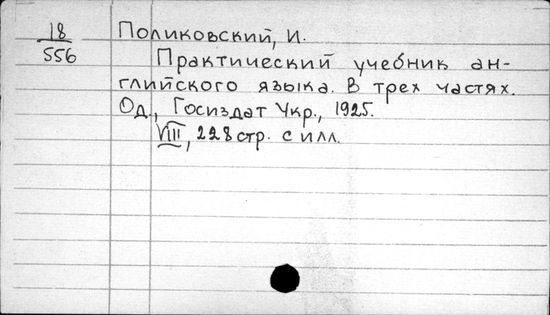 18
556
Поликовский, И.
Практический учебник ан-
глийского языка. В трех частях.
Од., Госиздат Укр., 1925.
VIII, 228 стр. с илл.